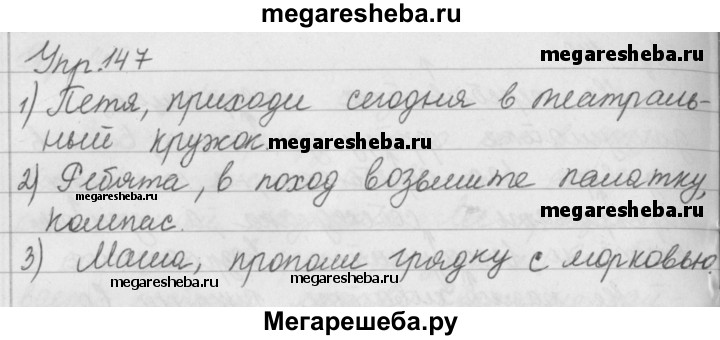 megaresheba.ru
Упр. 147
megaresheba.ru
1) Петя, приходи сегодня в театраль-
ный кружок.
megaresheba.ru
2) Ребята, в поход возьмите палатку,
megaresheba.ru
компас.
3) Маша, прополи грядку с морковью.
megaresheba.ru
megaresheba.ru
Мегарешеба.ру